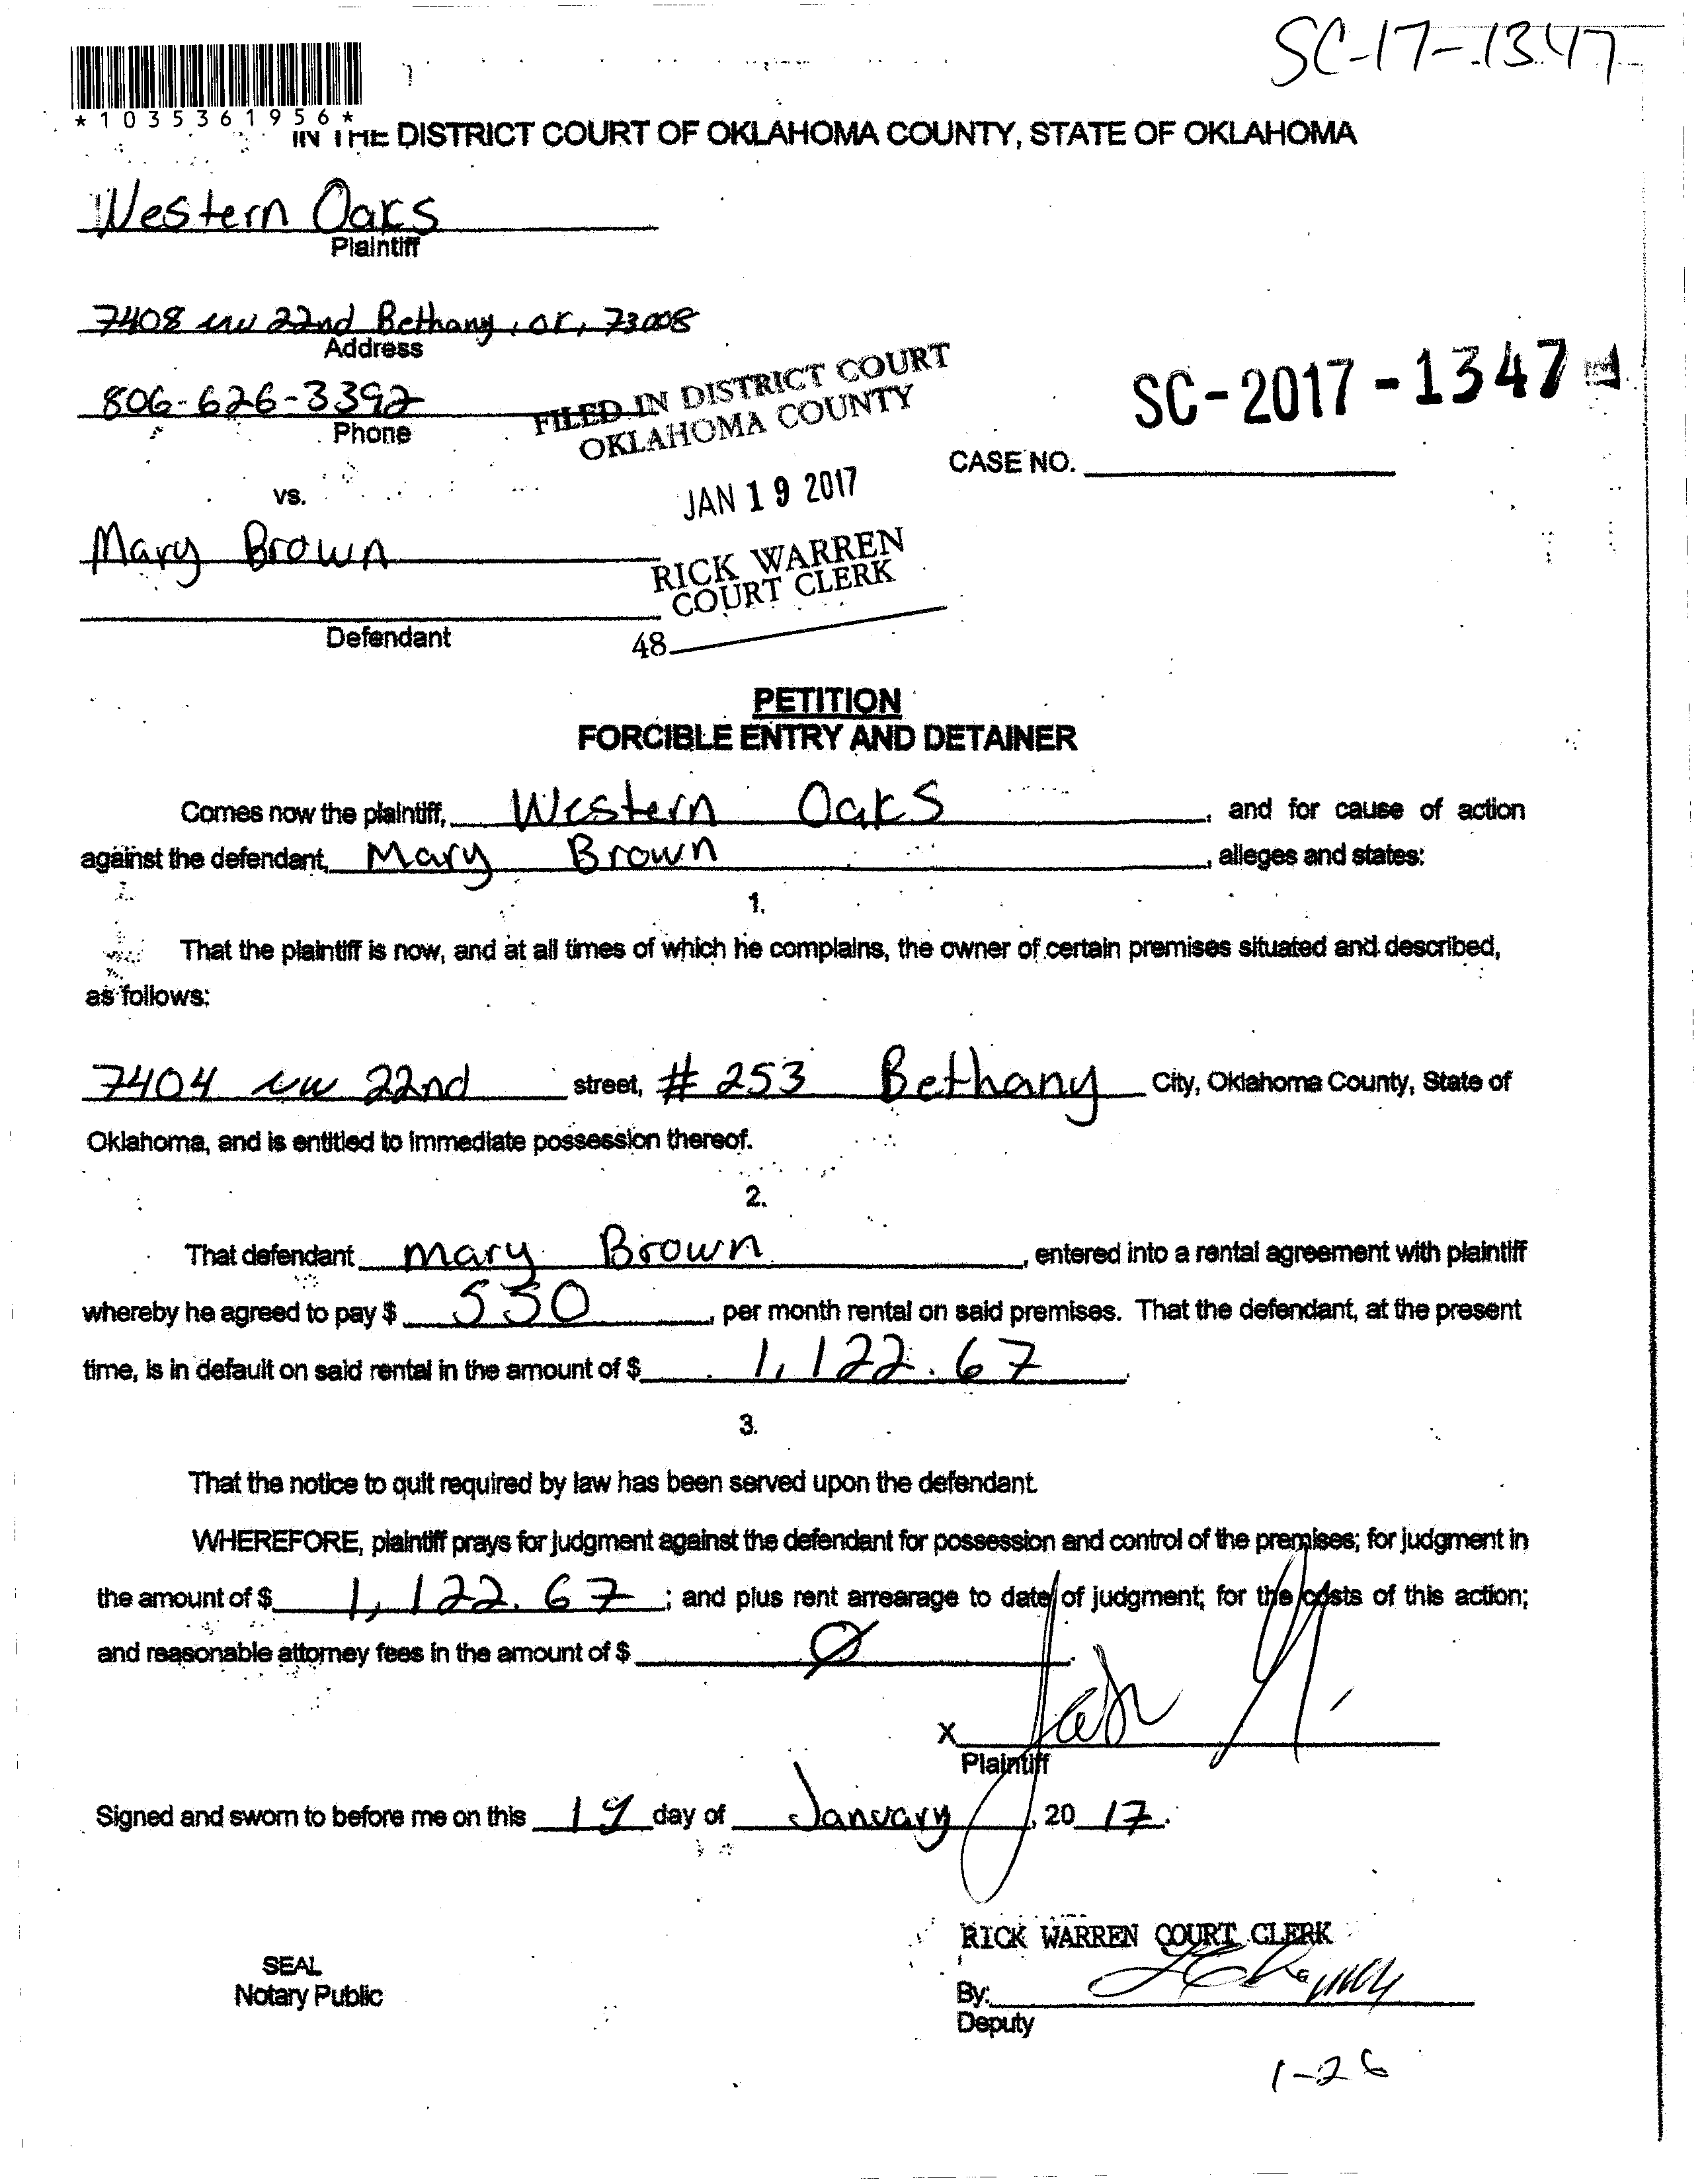 SC-17-1347
*1035361956*
IN THE DISTRICT COURT OF OKLAHOMA COUNTY, STATE OF OKLAHOMA
Western Oaks
Plaintiff
7408 NW 22nd Bethany, OK, 73008
Address
806-626-3392
Phone
FILED IN DISTRICT COURT
OKLAHOMA COUNTY
SC-2017-1347
CASE NO.
JAN 19 2017
vs.
Mary Brown
RICK WARREN
COURT CLERK
Defendant
48
PETITION
FORCIBLE ENTRY AND DETAINER
Comes now the plaintiff, Western Oaks, and for cause of action
against the defendant, Mary Brown, alleges and states:
1.
That the plaintiff is now, and at all times of which he complains, the owner of certain premises situated and described,
as follows:
7404 NW 22nd street, # 253 Bethany City, Oklahoma County, State of
Oklahoma, and is entitled to immediate possession thereof.
2.
That defendant Mary Brown, entered into a rental agreement with plaintiff
whereby he agreed to pay $ 530, per month rental on said premises. That the defendant, at the present
time, is in default on said rental in the amount of $ 1,122.67.
3.
That the notice to quit required by law has been served upon the defendant.
WHEREFORE, plaintiff prays for judgment against the defendant for possession and control of the premises; for judgment in
the amount of $ 1,122.67; and plus rent arrearage to date of judgment; for the costs of this action;
and reasonable attorney fees in the amount of $ Ø.
X
Plaintiff
Signed and sworn to before me on this 19 day of January, 20 17.
RICK WARREN COURT CLERK
SEAL
Notary Public
By:
Deputy
1-26